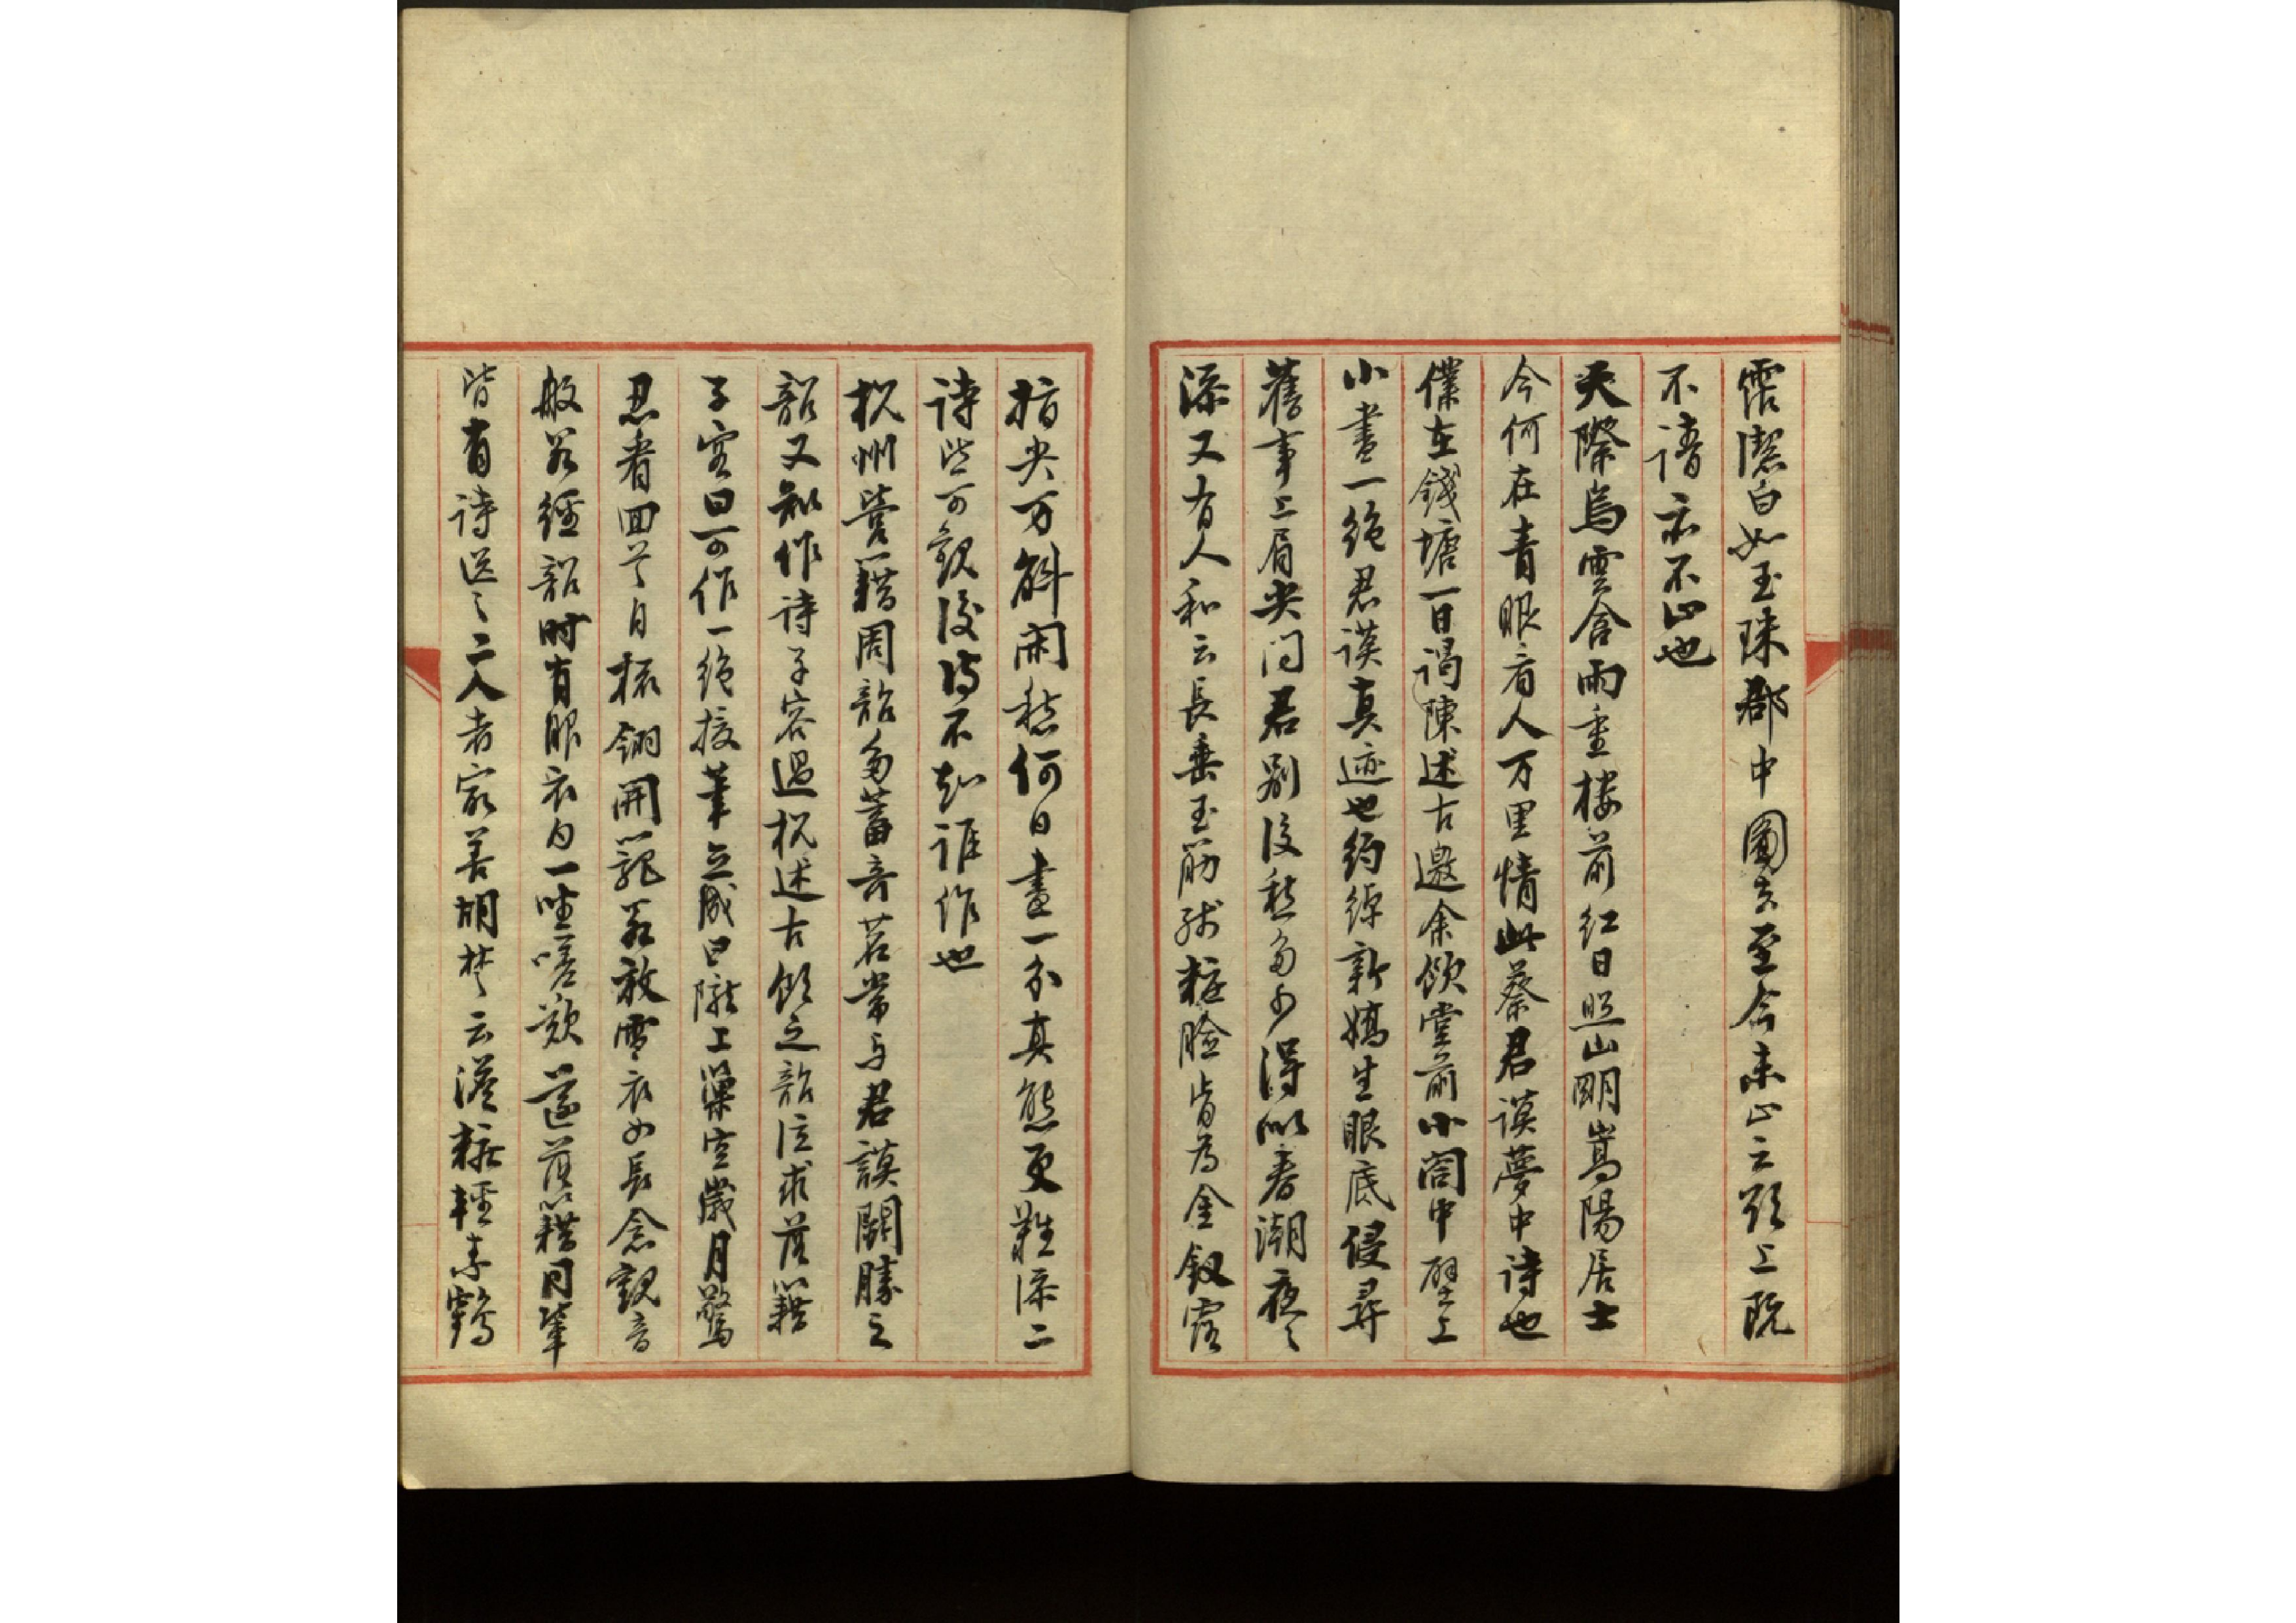 潔白如玉珠郡中圖去至今未止云頭上既
不請亦不止也
天際烏雲含雨重樓前紅日照山明嵩陽居士
今何在青眼看人万里情此蔡君謨夢中詩也
僕在錢塘一日謁陳述古邀余飲堂前小閤中壁上
小書一絕君謨真迹也約綽新嬌生眼底侵尋
舊事上眉尖問君別後愁多少得似春潮夜〻
添又有人和云長垂玉筯殘粧臉肯為金釵露
指尖万斛閑愁何日盡一分真態更難添二
詩皆可觀後詩不知誰作也
杭州營籍周韶多蓄奇茗常与君謨鬪勝之
韶又知作詩子容過杭述古飲之韶泣求落籍
子容曰可作一絕援筆立成曰隴上巢空歲月驚
忍看回首自梳翎開籠若放雪衣女長念觀音
般若經韶時有服衣白一坐嗟歎遂落籍同輩
皆有詩送〻二人者最善胡楚云淡粧輕素鶴